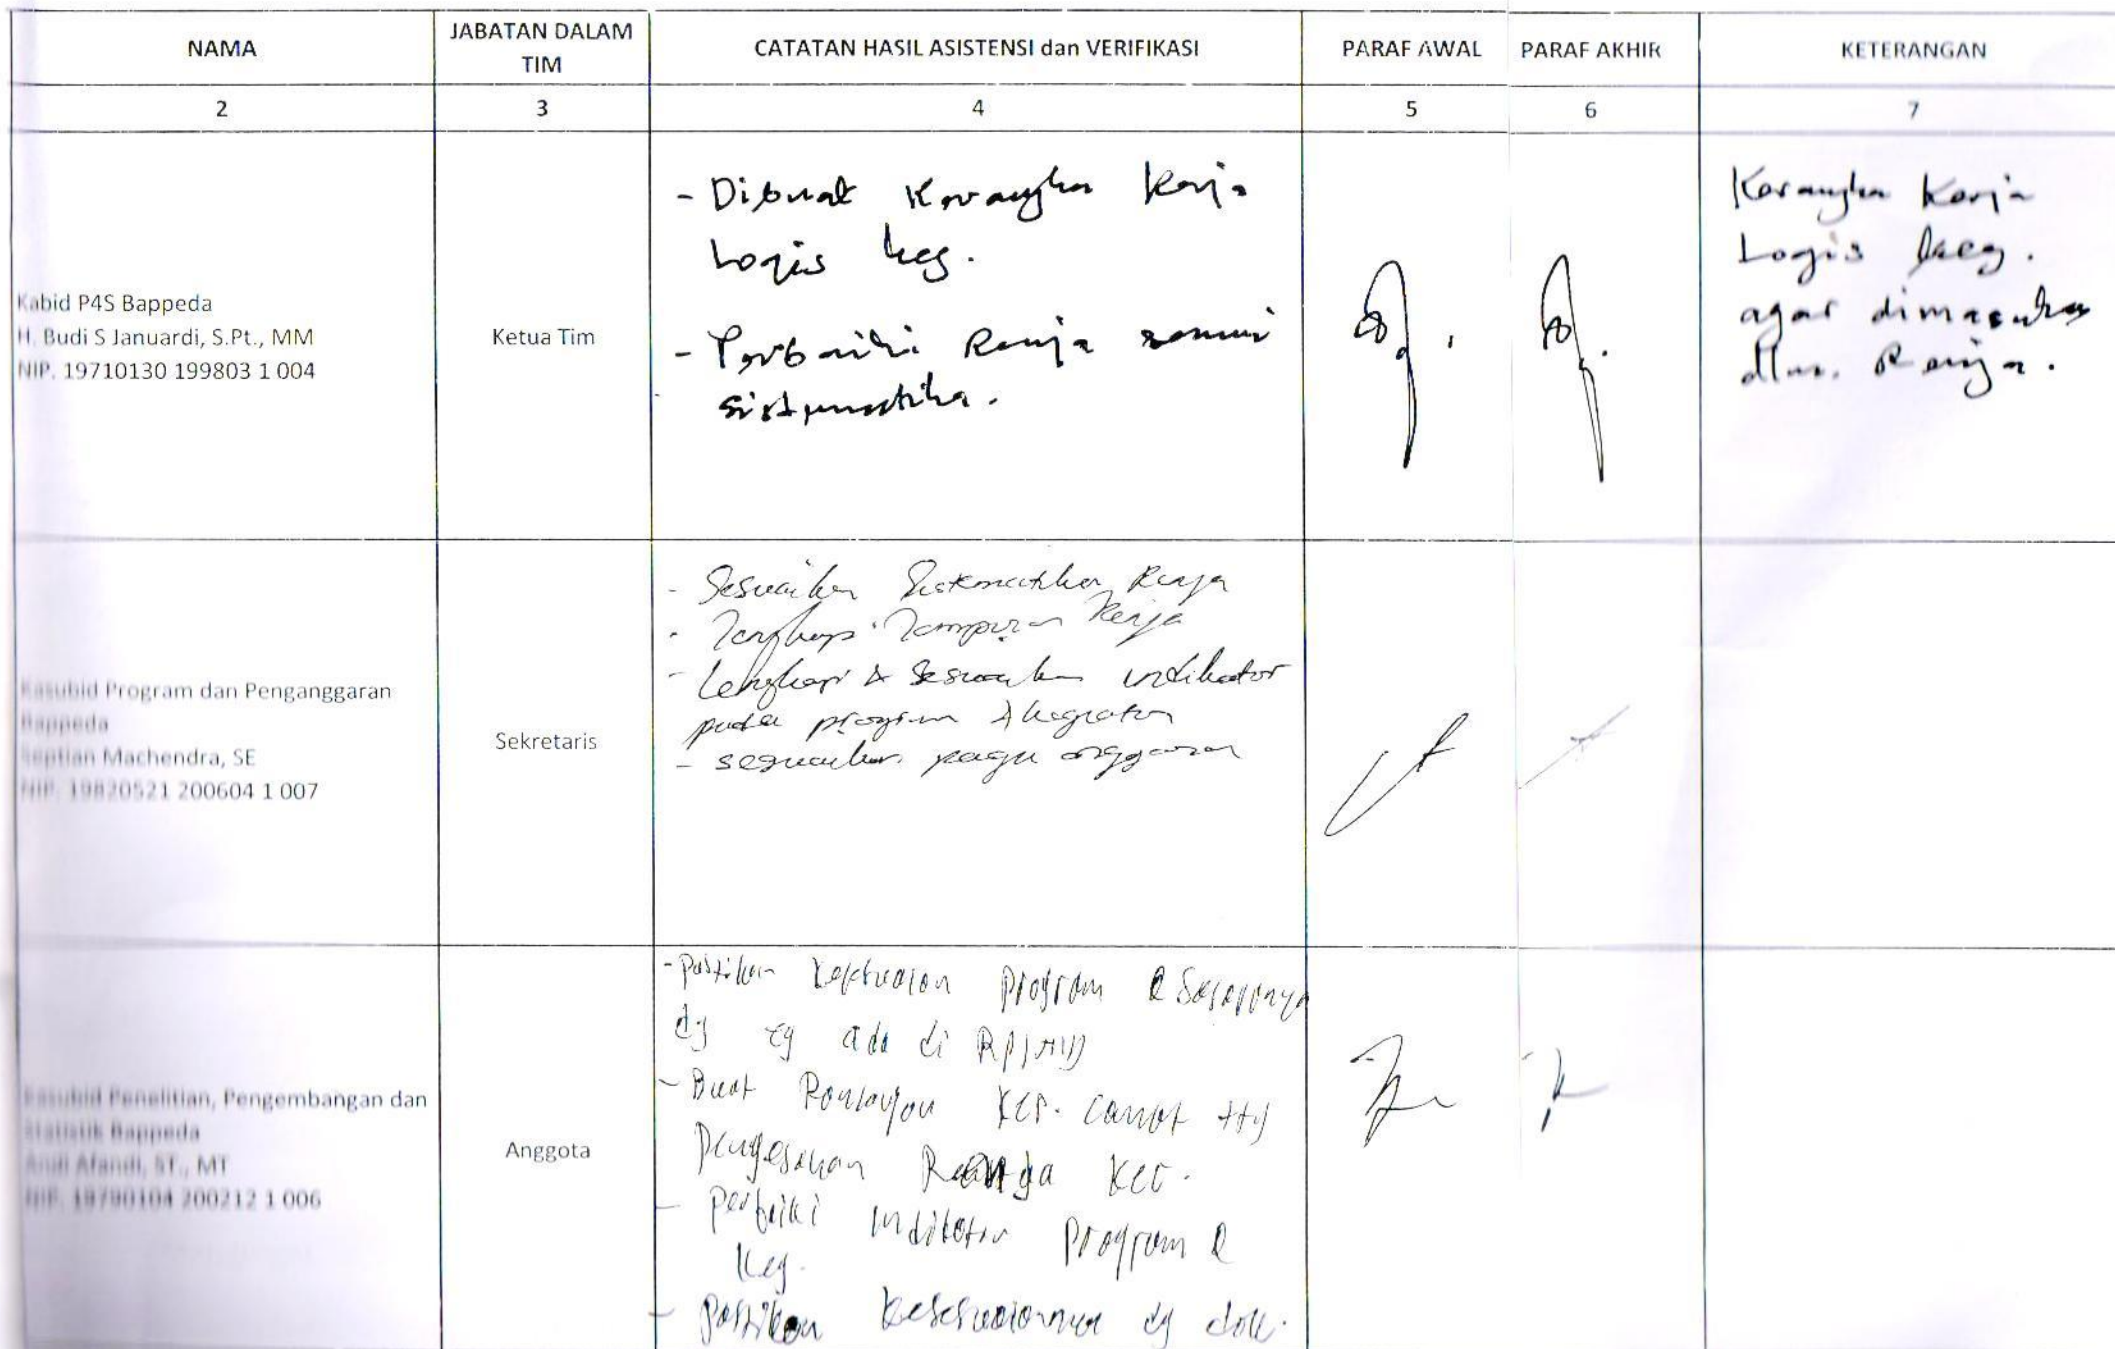 NAMA
JABATAN DALAM
TIM
CATATAN HASIL ASISTENSI dan VERIFIKASI
PARAF AWAL
PARAF AKHIR
KETERANGAN
2
3
4
5
6
7
Kabid P4S Bappeda
H. Budi S Januardi, S.Pt., MM
NIP. 19710130 199803 1 004
Ketua Tim
- Dibuat Kerangka Kerja
Logis keg.
- Perbaiki Renja sesuai
sistematika.
Kerangka Kerja
Logis keg.
agar dimasukan
dlm. Renja.
Kasubid Program dan Penganggaran
Bappeda
Septian Machendra, SE
NIP. 19820521 200604 1 007
Sekretaris
- Sesuaikan Sistematika Renja
- Lengkapi Lampiran Renja
- Lengkapi & Sesuaikan indikator
pada program & kegiatan
- sesuaikan pagu anggaran
Kasubid Penelitian, Pengembangan dan
Statistik Bappeda
Andi Afandi, ST., MT
NIP. 19790104 200212 1 006
Anggota
- Pastikan kesesuaian program & Sasarannya
dg yg ada di RPJMD
- Buat Kec. Camat ttg
pengesahan Renja Kec.
- perbaiki indikator program &
Keg.
- pastikan kesesuaiannya dg dok.